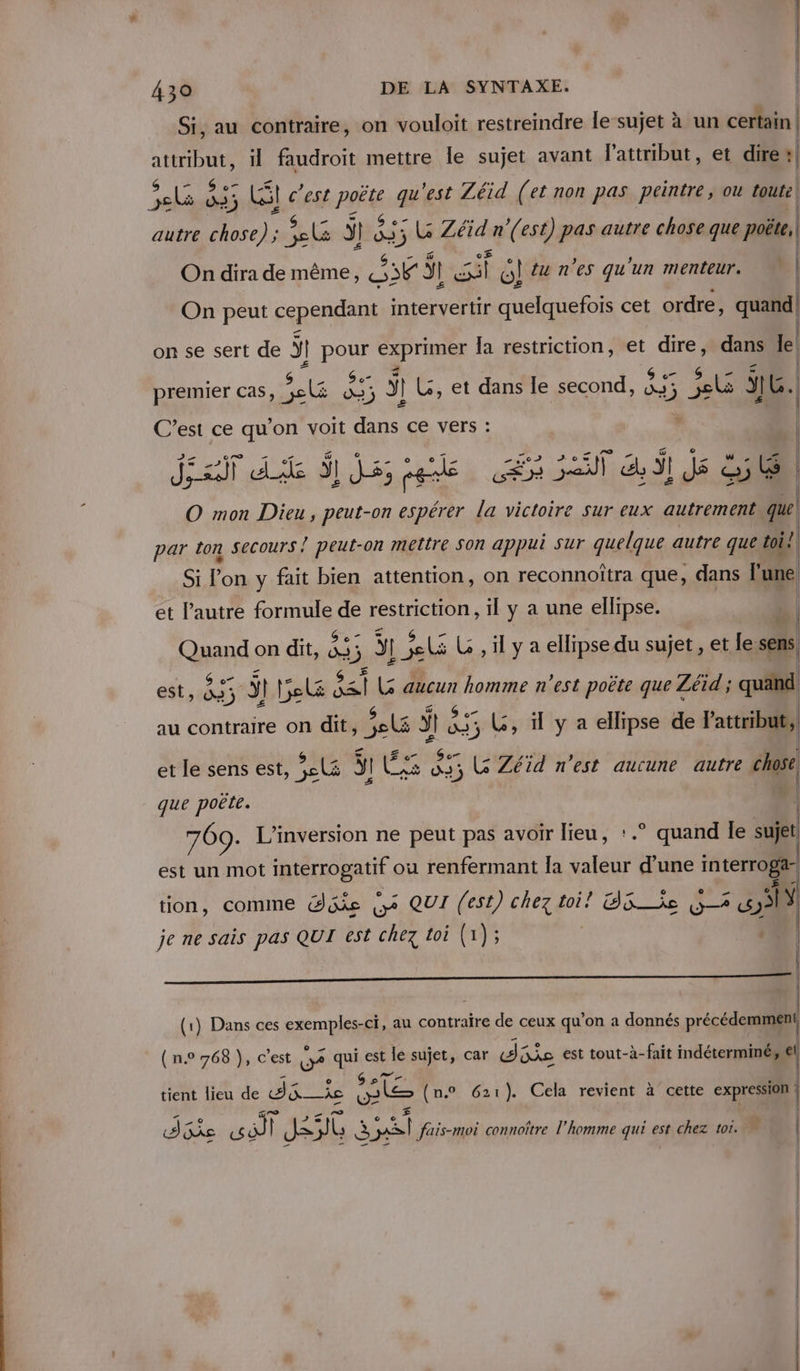 430 DE LA SYNTAXE.
Si, au contraire, on vouloit restreindre le sujet à un certain
attribut, il faudroit mettre le sujet avant l'attribut, et dire :
إِنَّمَا زَيْدٌ شَاعِرٌ c'est poëte qu'est Zéïd (et non pas peintre, ou toute
autre chose); مَا زَيْدٌ إِلَّا شَاعِرٌ Zéïd n'(est) pas autre chose que poëte,
On dira de même, إِنْ أَنْتَ إِلَّا كَاذِبٌ tu n'es qu'un menteur.
On peut cependant intervertir quelquefois cet ordre, quand
on se sert de إِلَّا pour exprimer la restriction, et dire, dans le
premier cas, مَا إِلَّا زَيْدٌ شَاعِرٌ, et dans le second, مَا إِلَّا شَاعِرٌ زَيْدٌ.
C'est ce qu'on voit dans ce vers :
فَيَا رَبِّ هَلْ إِلَّا بِكَ ٱلنَّصْرُ يُرْتَجَى عَلَيْهِمْ وَهَلْ إِلَّا عَلَيْكَ ٱلْمُعَوَّلُ
O mon Dieu, peut-on espérer la victoire sur eux autrement que
par ton secours! peut-on mettre son appui sur quelque autre que toi!
Si l'on y fait bien attention, on reconnoîtra que, dans l'une
et l'autre formule de restriction, il y a une ellipse.
Quand on dit, مَا شَاعِرٌ إِلَّا زَيْدٌ, il y a ellipse du sujet, et le sens
est, مَا أَحَدٌ شَاعِرًا إِلَّا زَيْدٌ aucun homme n'est poëte que Zéïd; quand
au contraire on dit, مَا زَيْدٌ إِلَّا شَاعِرٌ, il y a ellipse de l'attribut,
et le sens est, مَا زَيْدٌ شَيْئًا إِلَّا شَاعِرٌ Zéïd n'est aucune autre chose
que poëte.
769. L'inversion ne peut pas avoir lieu, 1.° quand le sujet
est un mot interrogatif ou renfermant la valeur d'une interroga-
tion, comme مَنْ عِنْدَكَ QUI (est) chez toi! لَا أَدْرِى مَنْ عِنْدَكَ
je ne sais pas QUI est chez toi (1);
(1) Dans ces exemples-ci, au contraire de ceux qu'on a donnés précédemment
(n.° 768), c'est مَنْ qui est le sujet, car عِنْدَكَ est tout-à-fait indéterminé, et
tient lieu de كَائِنٌ عِنْدَكَ (n.° 621). Cela revient à cette expression :
أَخْبِرْنِى بِٱلرَّجُلِ ٱلَّذِى عِنْدَكَ fais-moi connoître l'homme qui est chez toi.